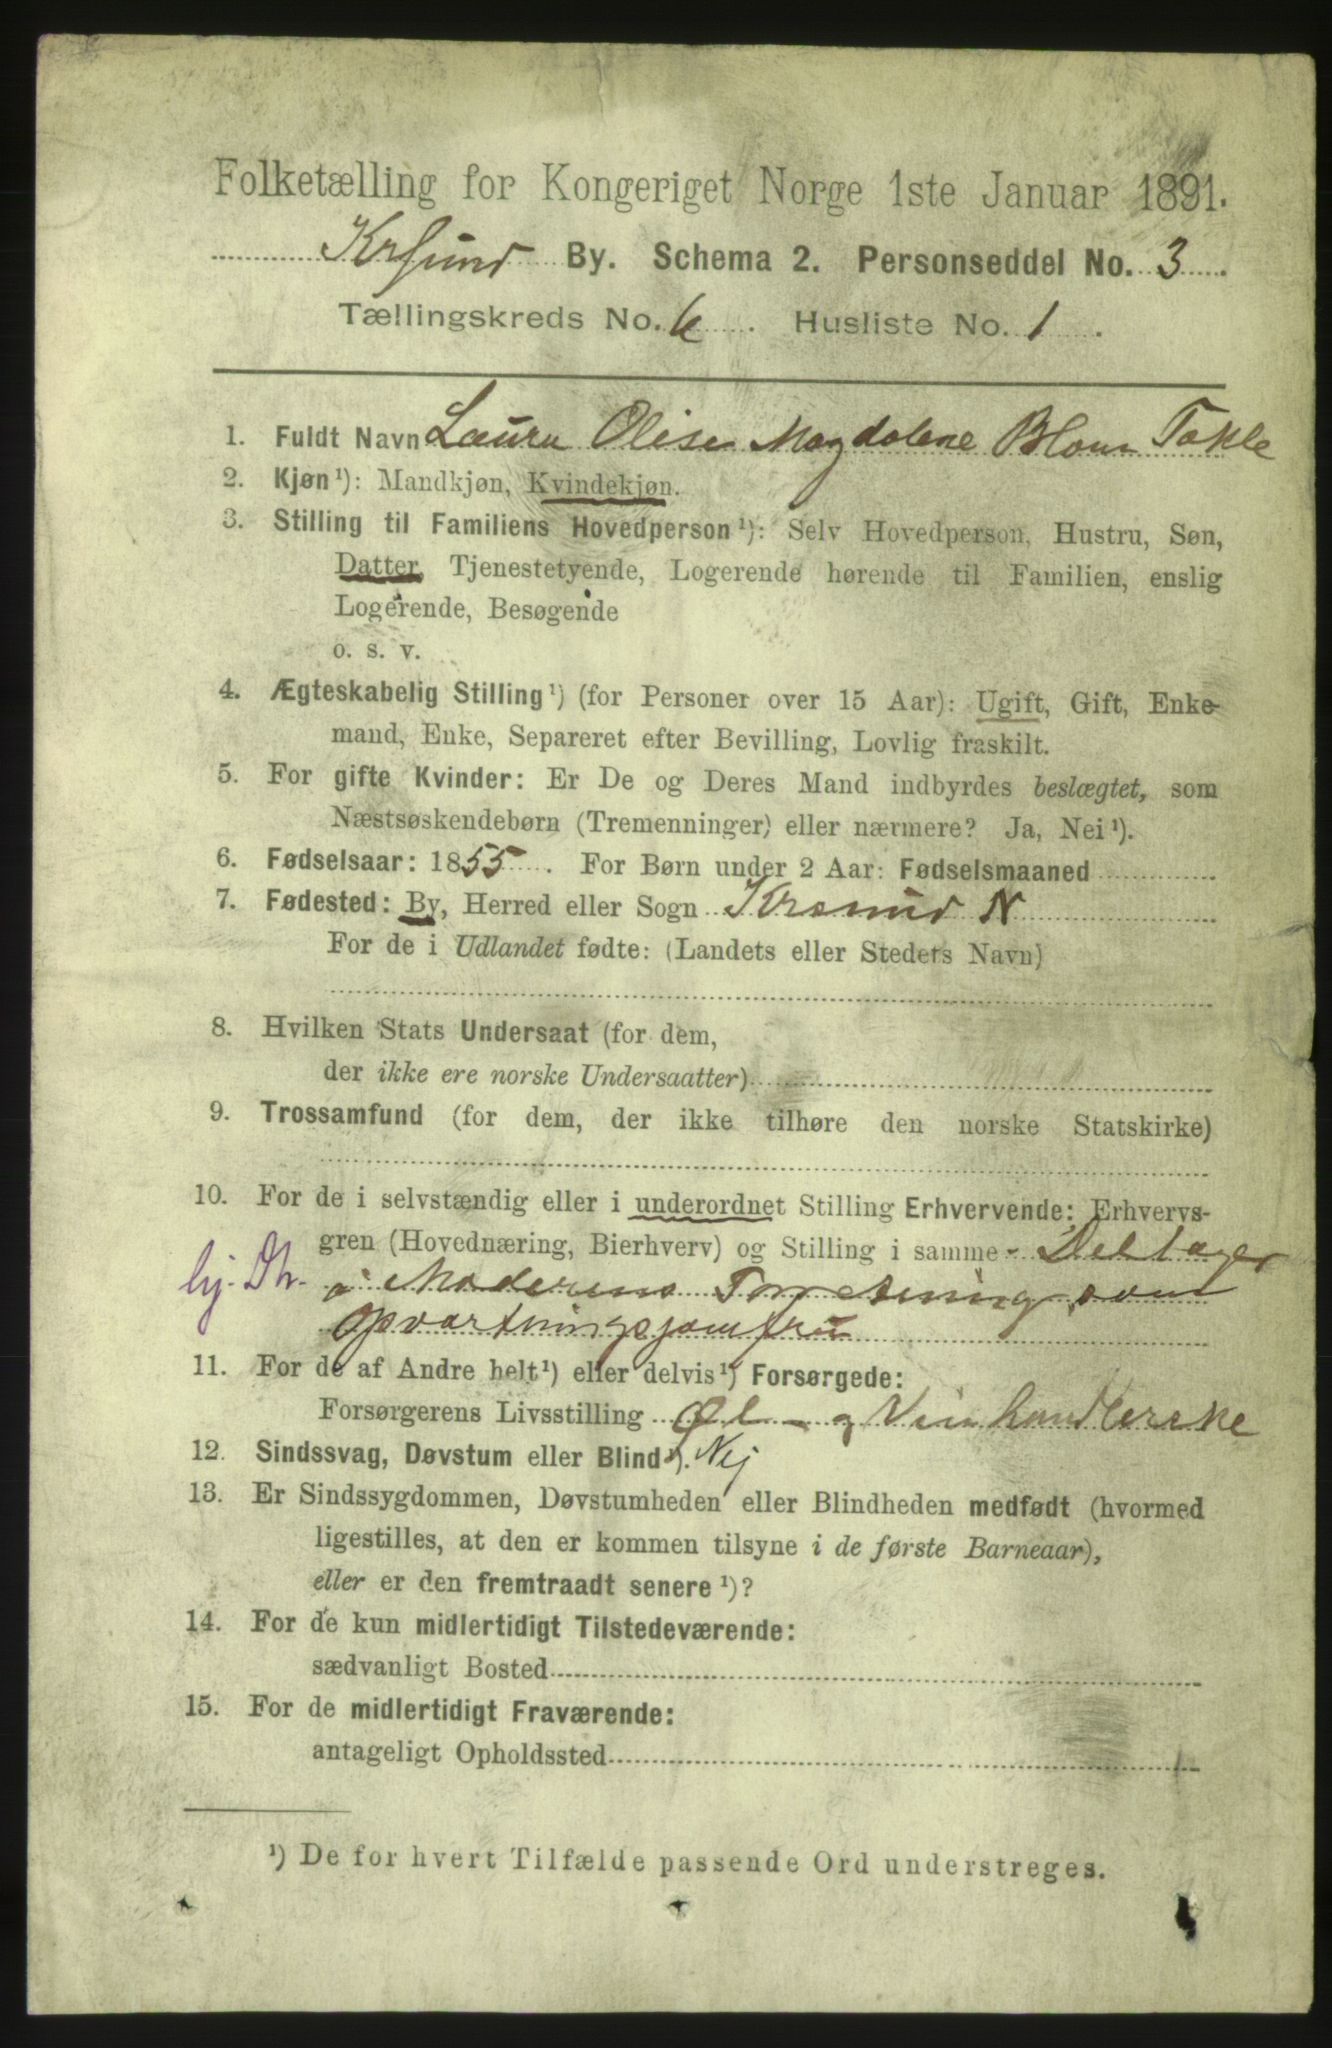 Folketælling for Kongeriget Norge 1ste Januar 1891.
Krsund By. Schema 2. Personseddel No. 3
Tællingskreds No. 6. Husliste No. 1.
1. Fuldt Navn Laura Olise Magdalene Blom Takle
2. Kjøn¹): Mandkjøn, Kvindekjøn.
3. Stilling til Familiens Hovedperson¹): Selv Hovedperson, Hustru, Søn,
Datter, Tjenestetyende, Logerende hørende til Familien, enslig
Logerende, Besøgende
o. s. v.
4. Ægteskabelig Stilling¹) (for Personer over 15 Aar): Ugift, Gift, Enke-
mand, Enke, Separeret efter Bevilling, Lovlig fraskilt.
5. For gifte Kvinder: Er De og Deres Mand indbyrdes beslægtet, som
Næstsøskendebørn (Tremenninger) eller nærmere? Ja, Nei¹).
6. Fødselsaar: 1855. For Børn under 2 Aar: Fødselsmaaned
7. Fødested: By, Herred eller Sogn Krsund N
For de i Udlandet fødte: (Landets eller Stedets Navn)
8. Hvilken Stats Undersaat (for dem,
der ikke ere norske Undersaatter)
9. Trossamfund (for dem, der ikke tilhøre den norske Statskirke)
10. For de i selvstændig eller i underordnet Stilling Erhvervende: Erhvervs-
gren (Hovednæring, Bierhverv) og Stilling i samme - Deltager
hj. Dtr. i Moderens Forretning som
Opvartningsjomfru
11. For de af Andre helt¹) eller delvis¹) Forsørgede:
Forsørgerens Livsstilling Øl- og Vinhandlerske
12. Sindssvag, Døvstum eller Blind¹). Nej
13. Er Sindssygdommen, Døvstumheden eller Blindheden medfødt (hvormed
ligestilles, at den er kommen tilsyne i de første Barneaar),
eller er den fremtraadt senere¹)?
14. For de kun midlertidigt Tilstedeværende:
sædvanligt Bosted
15. For de midlertidigt Fraværende:
antageligt Opholdssted
¹) De for hvert Tilfælde passende Ord understreges.